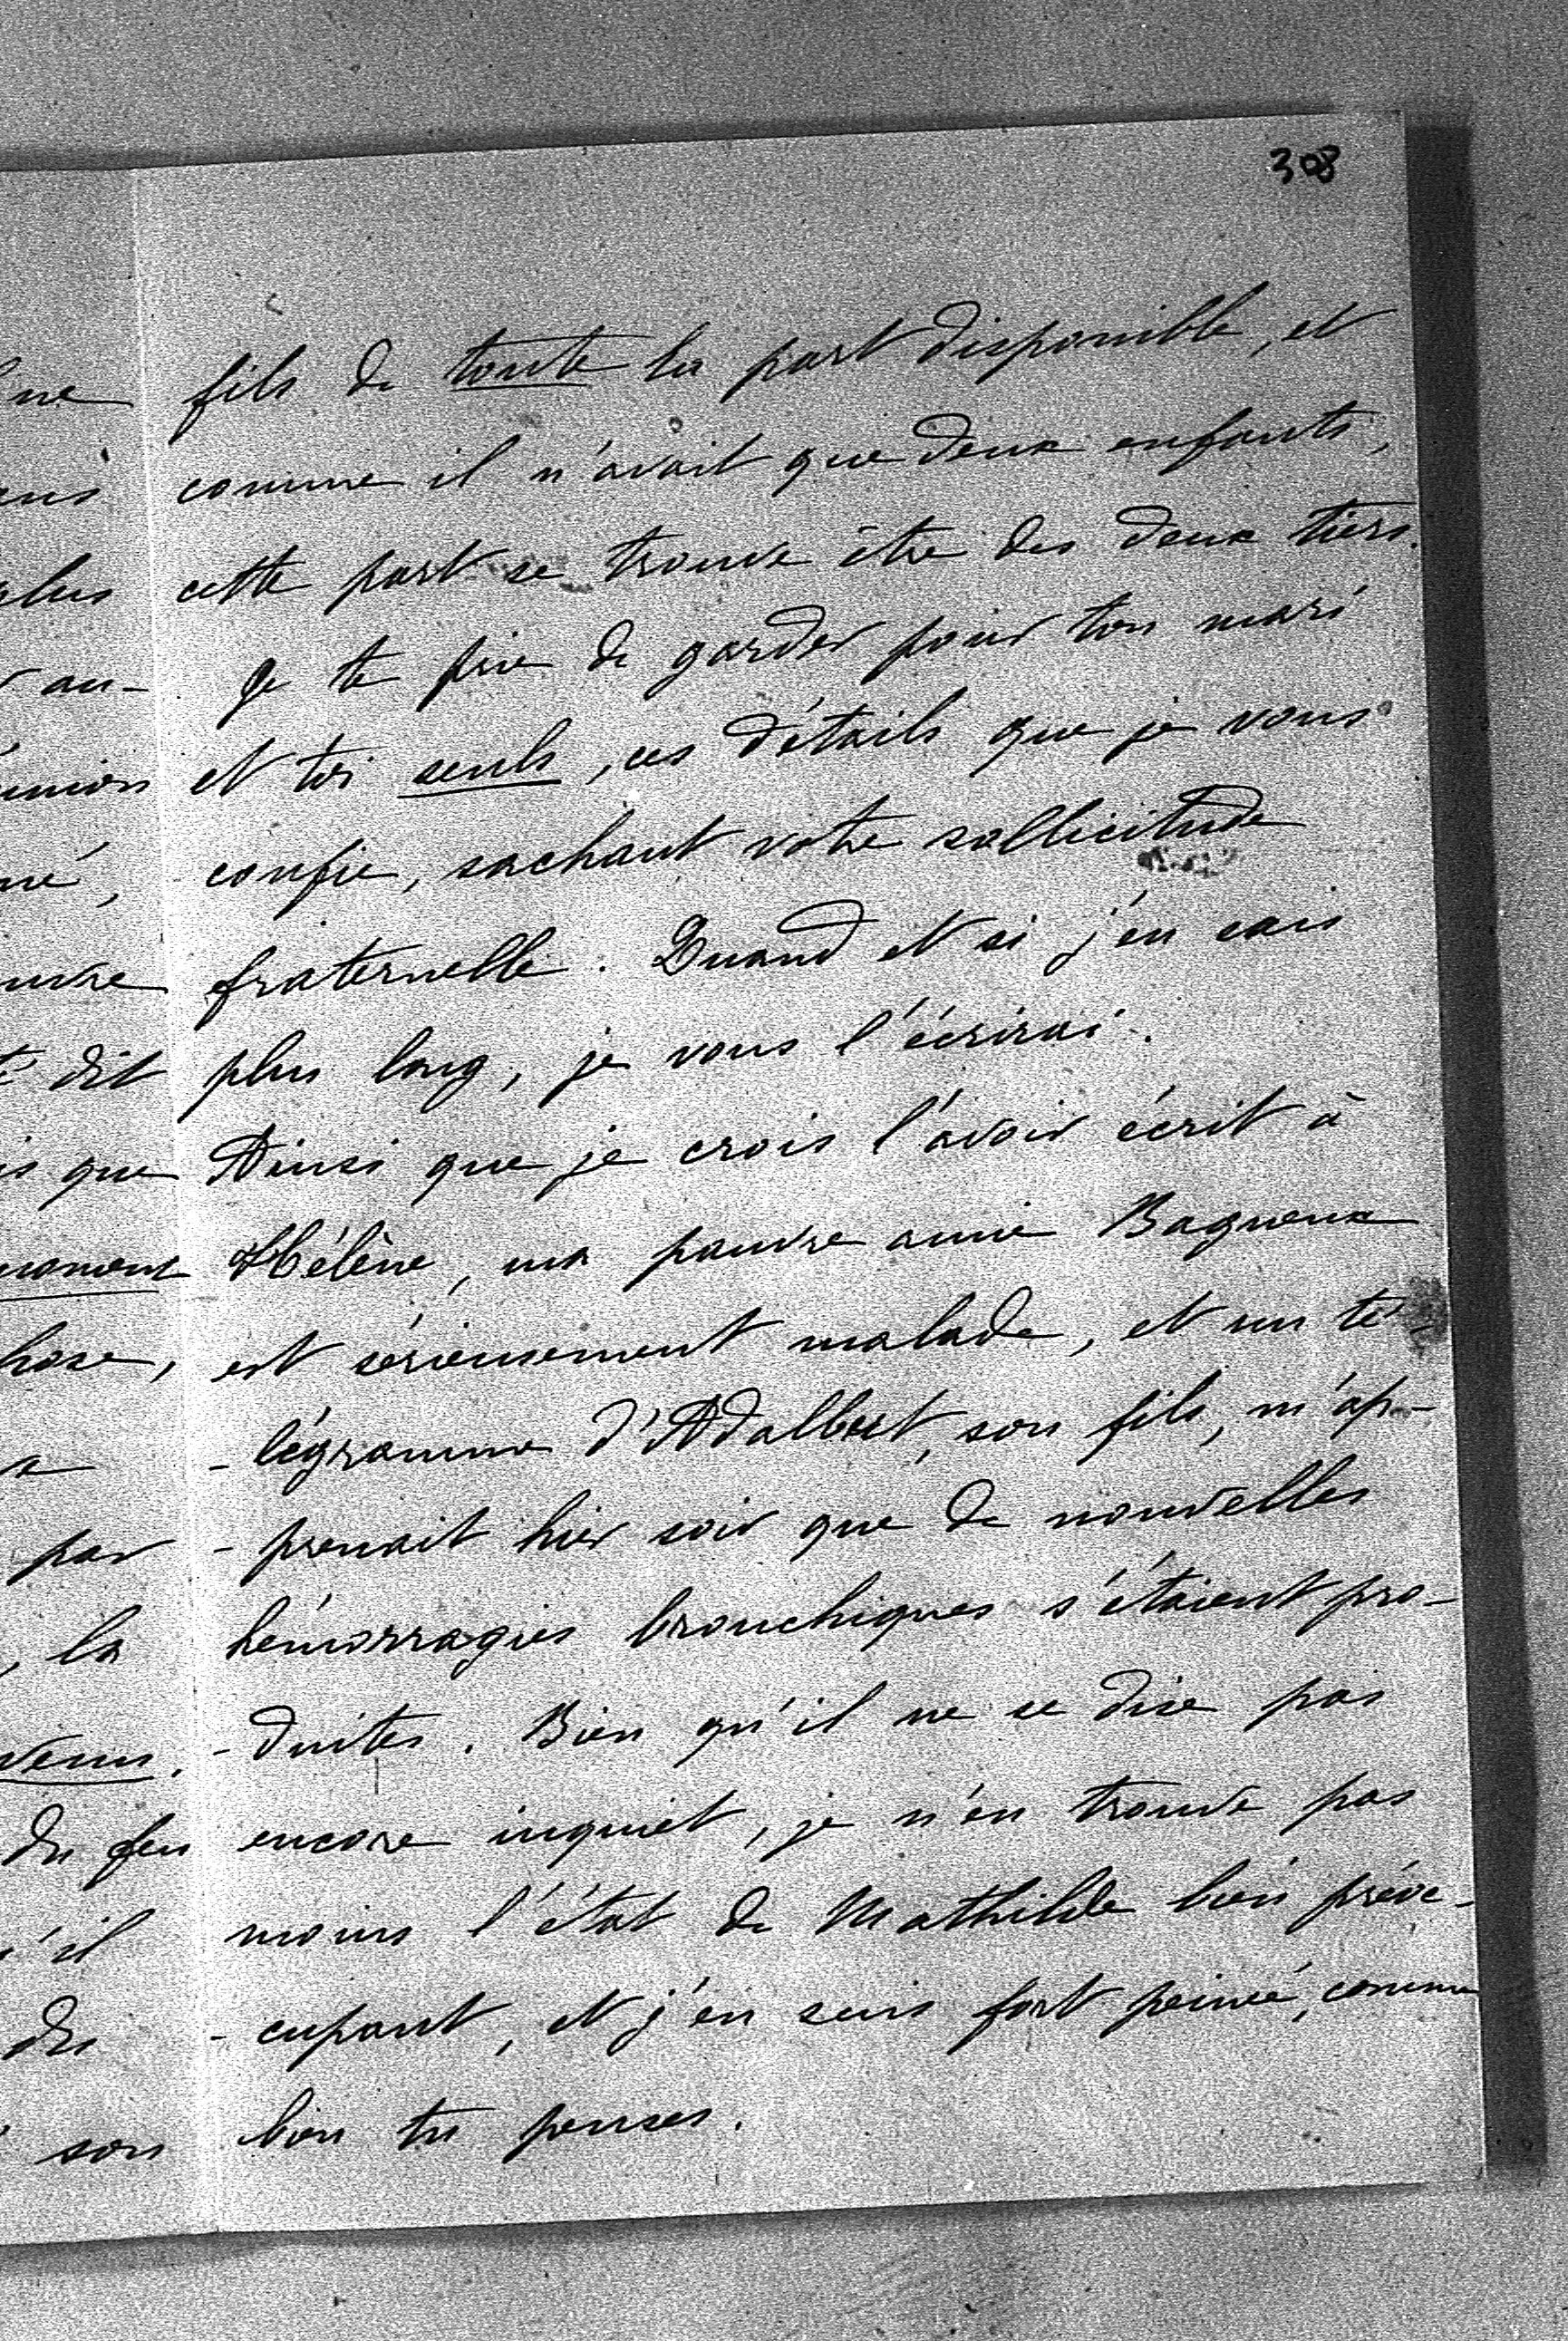 308
fils de toute la part disponible, et
comme il n'avait que deux enfants,
cette part se trouve être des deux tiers.
Je te prie de garder pour ton mari
et toi seuls, ces détails que je vous
confie, sachant votre sollicitude
fraternelle. Quand et si j'en sais
plus long, je vous l'écrirai.
Ainsi que je crois l'avoir écrit à
Hélène, ma pauvre amie Bagneux
est sérieusement malade, et un té-
-légramme d'Adalbert, son fils, m'ap-
-prenait hier soir que de nouvelles
hémorragies bronchiques s'étaient pro-
-duites. Bien qu'il ne se dise pas
encore inquiet, je n'en trouve pas
moins l'état de Mathilde bien préoc-
-cupant, et j'en suis fort peiné, comme
bien tu penses.
ne
plus
au-
dit
que
moment
par
la
du feu
il
des
son